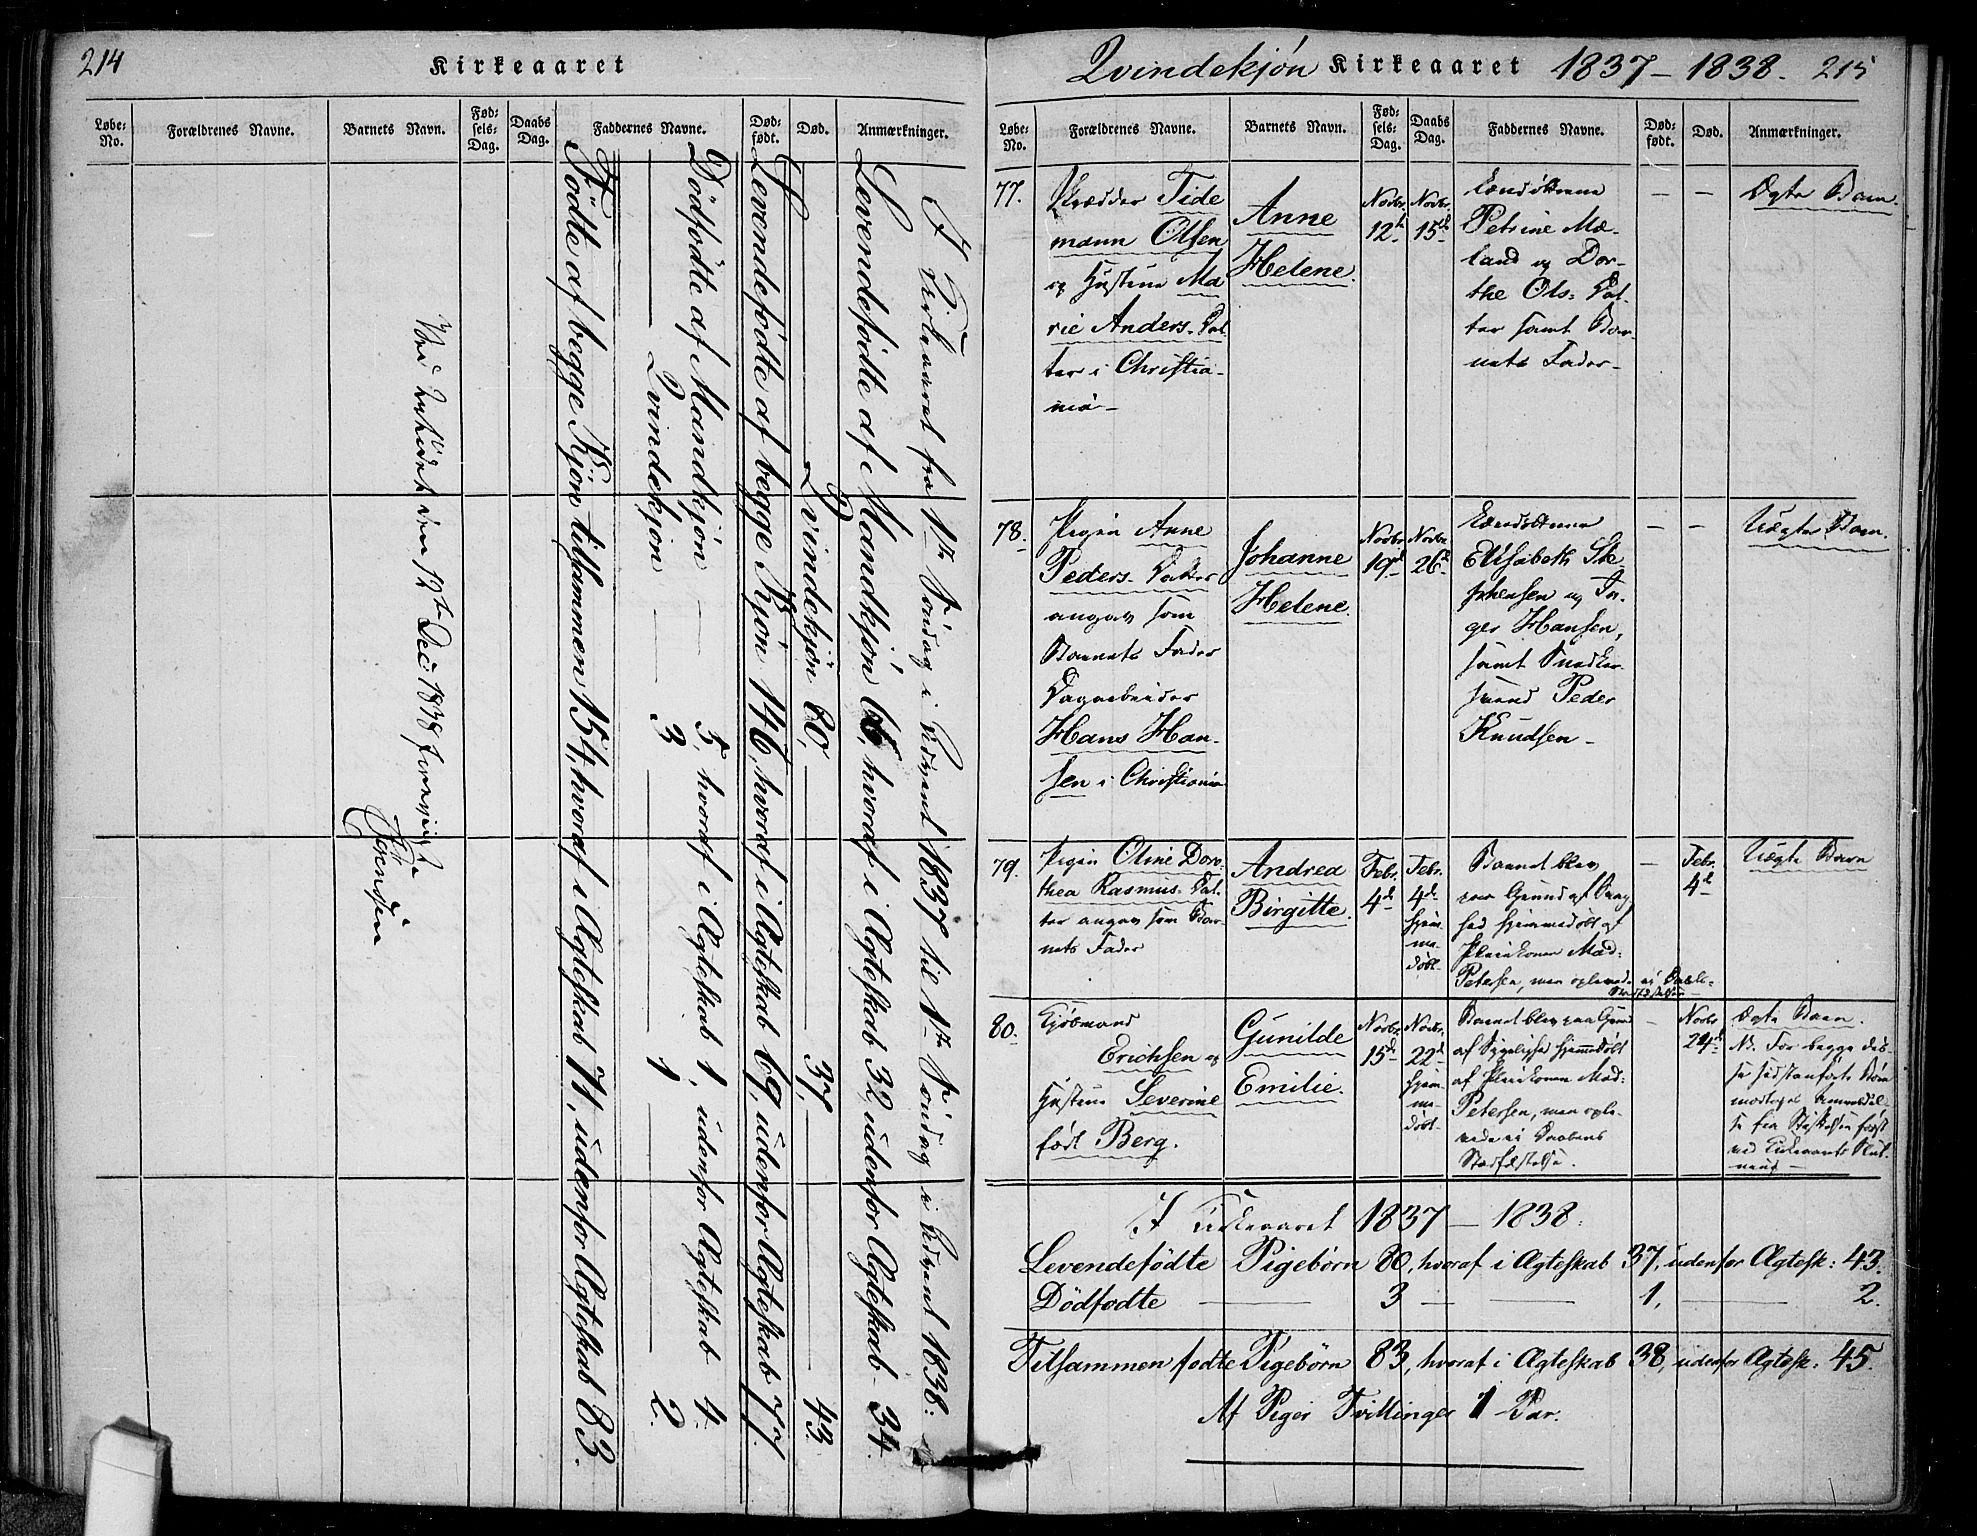 214
Kirkeaaret
Løbe-No.
Forældrenes Navne.
Barnets Navn.
Fødsels-Dag.
Daabs Dag.
Faddernes Navne.
Dødfødt.
Død.
Anmærkninger.
I Kirkeaaret fra 1ste Søndag i Advent 1837 til 1ste Søndag i Advent 1838:
Levendefödte af Mandkjön 66, hvoraf i Ægteskab 32, udenfor Ægteskab 34.
Qvindekjön 80, — 37, — 43.
Levendefödte af begge Kjön 146, hvoraf i Ægteskab 69, udenfor Ægteskab 77.
Dödfödte af Mandkjön — 5, hvoraf i Ægteskab 1, udenfor Ægteskab 4.
— Qvindekjön — 3 — 1, — 2.
Födte af begge Kjön tilsammen 154, hvoraf i Ægteskab 71, udenfor Ægteskab 83.
den 12te Dec: 1838
Qvindekjön Kirkeaaret 1837 – 1838. 215
Løbe-No.
Forældrenes Navne.
Barnets Navn.
Fødsels-Dag.
Daabs Dag.
Faddernes Navne.
Dødfødt.
Død.
Anmærkninger.
77.
Skrædder Tide
mann Olsen
og Hustrue Ma
rie Anders-Dat
ter i Christia-
nia –
Anne
Helene.
Novbr.
12te
Novbr.
15de
Petrine Mæ-
land og Dor-
the Ols-Dat-
ter samt Bar-
nets Fader –
— —
Ægte Barn
78.
Pigen Anne
Peders-Datter
angav som
Barnets Fader
Dagarbeider
Hans Han-
sen i Christiania
Johanne
Helene.
Novbr
19de
Novbr.
26de
Elisabeth Ste-
phensen og In-
ger Hansen,
samt Snedker-
svend Peder
Knudsen –
— —
Uægte Barn.
79.
Pigen Oline Doro
thea Rasmus-Dat
ter angav som Bar-
nets Fader
Andrea
Birgitte.
Febr.
4de
Febr.
4de
hjem-
me-
døbt –
Barnet blev
paa Grund af Svag
hed hjemmedøbt af
Pleiekonen Mad:
Petersen, men oplevede ei Daabs-
Stadfæstelse
—
Febr.
4de
Uægte Barn
80.
Kjøbmand
Erichsen og
Hustrue Severine
født Berg.
Gunilde
Emilie.
Novbr.
15de
Novbr.
22de
hjem-
me-
døbt –
Barnet blev paa Grund
af Svagelighed hjemmedøbt
af Pleiekonen Mad:
Petersen, men ople-
vede ei Daabens
Stadfæstelse.
—
Novbr
24de
Ægte Barn.
NB. For begge dis-
se sidstanførte Børn
modtoges Anmeldel-
se fra Stiftelsen først
ved Kirkeaarets Slut-
ning –
I Kirkeaaret 1837 – 1838:
Levendefødte Pigebørn 80, hvoraf i Ægteskab 37, udenfor Ægtesk: 43.
Dödfødte — 3 — — 1, — 2.
Tilsammen fødte Pigebörn 83, hvoraf i Ægteskab 38, udenfor Ægtesk: 45.
Af Piger Tvillinger 1 Par.